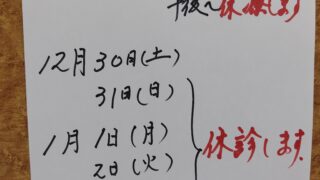 午後〜休療します
12月30日(土)
31日(日)
1月1日(月)
2日(火)
休診します.